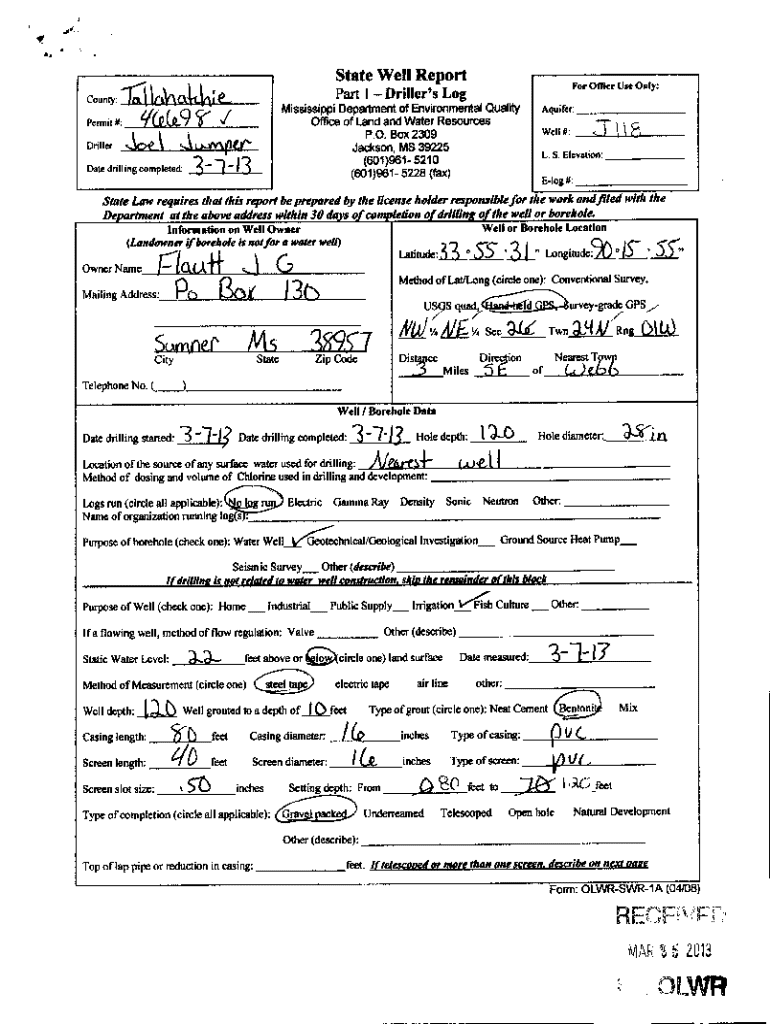 State Well Report
Part 1 – Driller's Log
Mississippi Department of Environmental Quality
Office of Land and Water Resources
P.O. Box 2309
Jackson, MS 39225
(601)961- 5210
(601)961- 5228 (fax)
County: Tallahatchie
Permit #: 46698 ✓
Driller Joel Jumper
Date drilling completed: 3-7-13
For Office Use Only:
Aquifer:
Well #: J118
L. S. Elevation:
E-log #:
State Law requires that this report be prepared by the license holder responsible for the work and filed with the
Department at the above address within 30 days of completion of drilling of the well or borehole.
Information on Well Owner
(Landowner if borehole is not for a water well)
Owner Name Flautt J G
Mailing Address: Po Box 130
Sumner Ms 38957
City State Zip Code
Telephone No. ( )
Well or Borehole Location
Latitude: 33 ° 55 ' 31 " Longitude: 90 ° 15 ' 55 "
Method of Lat/Long (circle one): Conventional Survey,
USGS quad, Hand-held GPS, Survey-grade GPS
NW ¼ NE ¼ Sec 26 Twn 24N Rng 01W
Distance Direction Nearest Town
3 Miles SE of Webb
Well / Borehole Data
Date drilling started: 3-7-13 Date drilling completed: 3-7-13 Hole depth: 120 Hole diameter: 28 in
Location of the source of any surface water used for drilling: Nearest well
Method of dosing and volume of Chlorine used in drilling and development:
Logs run (circle all applicable): No log run Electric Gamma Ray Density Sonic Neutron Other:
Name of organization running log(s):
Purpose of borehole (check one): Water Well ✓ Geotechnical/Geological Investigation Ground Source Heat Pump
Seismic Survey Other (describe)
If drilling is not related to water well construction, skip the remainder of this block
Purpose of Well (check one): Home Industrial Public Supply Irrigation ✓ Fish Culture Other:
If a flowing well, method of flow regulation: Valve Other (describe)
Static Water Level: 22 feet above or below (circle one) land surface Date measured: 3-7-13
Method of Measurement (circle one) steel tape electric tape air line other:
Well depth: 120 Well grouted to a depth of 10 feet Type of grout (circle one): Neat Cement Bentonite Mix
Casing length: 80 feet Casing diameter: 16 inches Type of casing: pvc
Screen length: 40 feet Screen diameter: 16 inches Type of screen: pvc
Screen slot size: .50 inches Setting depth: From 80 feet to 120 feet
Type of completion (circle all applicable): Gravel packed Underreamed Telescoped Open hole Natural Development
Other (describe):
Top of lap pipe or reduction in casing: feet. If telescoped or more than one screen, describe on next page
Form: OLWR-SWR-1A (04/08)
RECEIVED
MAR 2013
OLWR